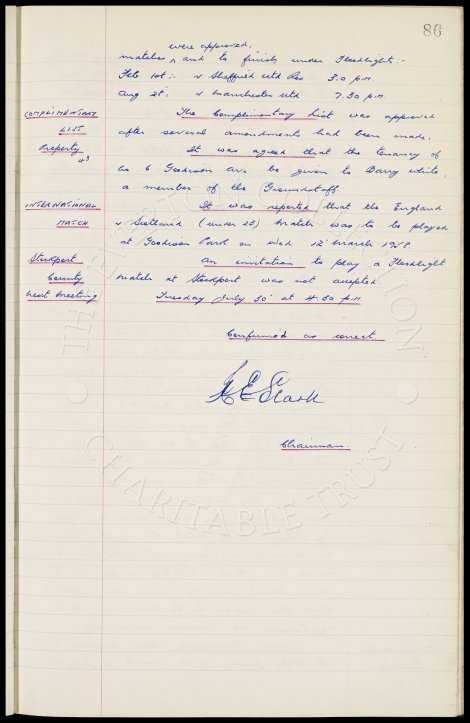 86
were approved,
matches, and to finish under Floodlight :-
Feb 1st :- v Sheffield Utd Res 3.0 p.m.
Aug 28th :- v Manchester Utd 7.30 p.m.
COMPLIMENTARY LIST The Complimentary List was approved
after several amendments had been made.
Property 43 It was agreed that the tenancy of
No 6 Goodison Ave be given to Barry White,
a member of the Groundstaff
INTERNATIONAL MATCH It was reported that the England
v Scotland (under 23) Match was to be played
at Goodison Park on Wed 12th March 1958.
Stockport County An invitation to play a Floodlight
match at Stockport was not accepted
Next Meeting Tuesday July 30th at 4.30 p.m.
Confirmed as correct.
Chairman.
THE EVERTON COLLECTION
CHARITABLE TRUST